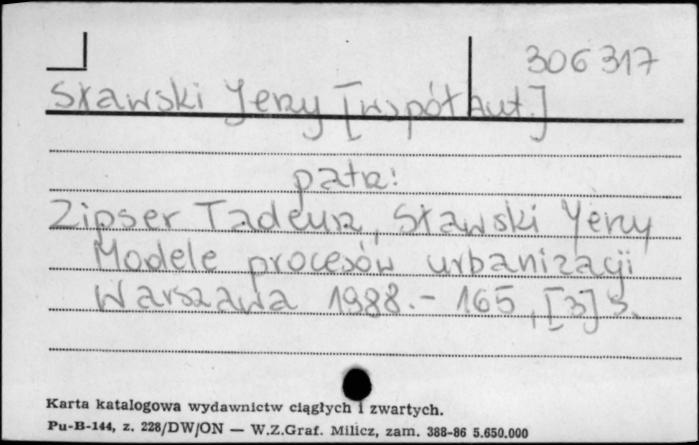 306 317
Sławski Jerzy [współaut.]
patrz:
Zipser Tadeusz, Sławski Jerzy
Modele procesów urbanizacji
Warszawa 1988.- 165, [3] s.
Karta katalogowa wydawnictw ciągłych i zwartych.
Pu-B-144, z. 228/DW/ON — W.Z.Graf. Milicz, zam. 388-86 5.650.000